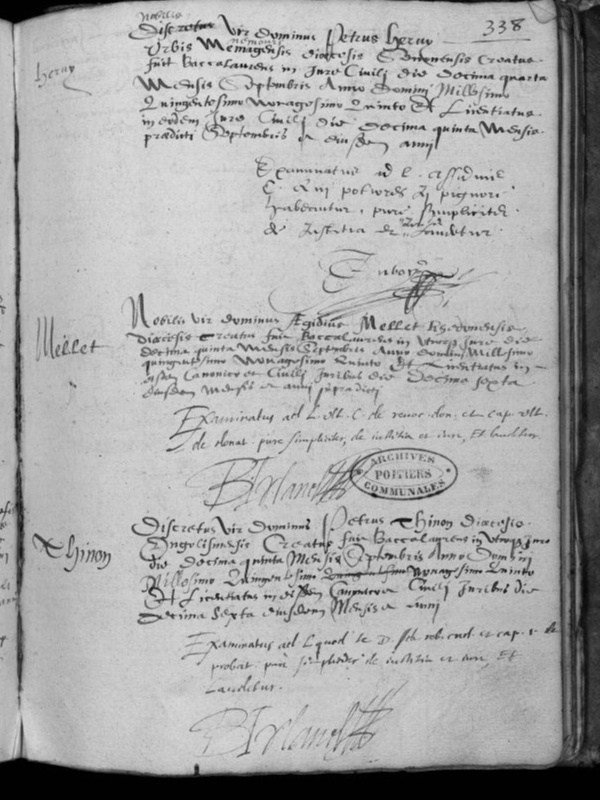 338
nobilis
Discretus vir dominus Petrus Heruy
Urbis diocesis creatus
fuit Baccalaureus in Jure Civili die decima quarta
Mensis Septembris Anno Domini Millesimo
Quingentesimo Nonagesimo Quinto Et Licentiatus
in eodem Jure Civili die decima quinta Mensis
prædicti Septembris et eiusdem anni
heruy
Examinatus ad l.
C. qui potiores in pignori
habeantur, pure simpliciter
de Justitia et
Nobilis vir dominus Ægidius Mellet
diocesis Creatus fuit Baccalaureus in utroq Jure die
decima quinta Mensis Septembris Anno domini Millesimo
quingentesimo Nonagesimo Quinto Et Licentiatus in
eisdem Canonico et Civili Juribus die Decima sexta
eiusdem mensis et anni
Mellet
Examinatus ad L. ult. C. de reuoc. don. et cap. ult.
de donat. pure simpliciter, de iustitia et iure, Et laudetur
ARCHIVES
POITIERS
COMMUNALES
Discretus Vir Dominus Petrus Thinon diocesis
Engolismensis Creatus fuit Baccalaureus in utroq Juro
die decima quinta Mensis Septembris Anno Domini
Millesimo Quingentesimo Nonagesimo Quinto
Et Licentiatus in eisdem Canonico et Civili Juribus die
Decima Sexta eiusdem Mensis et anni
Thinon
Examinatus ad L. quod te D. si cert. et cap. 1. de
probat. pure simpliciter de iustitia et iure Et
Laudetur.